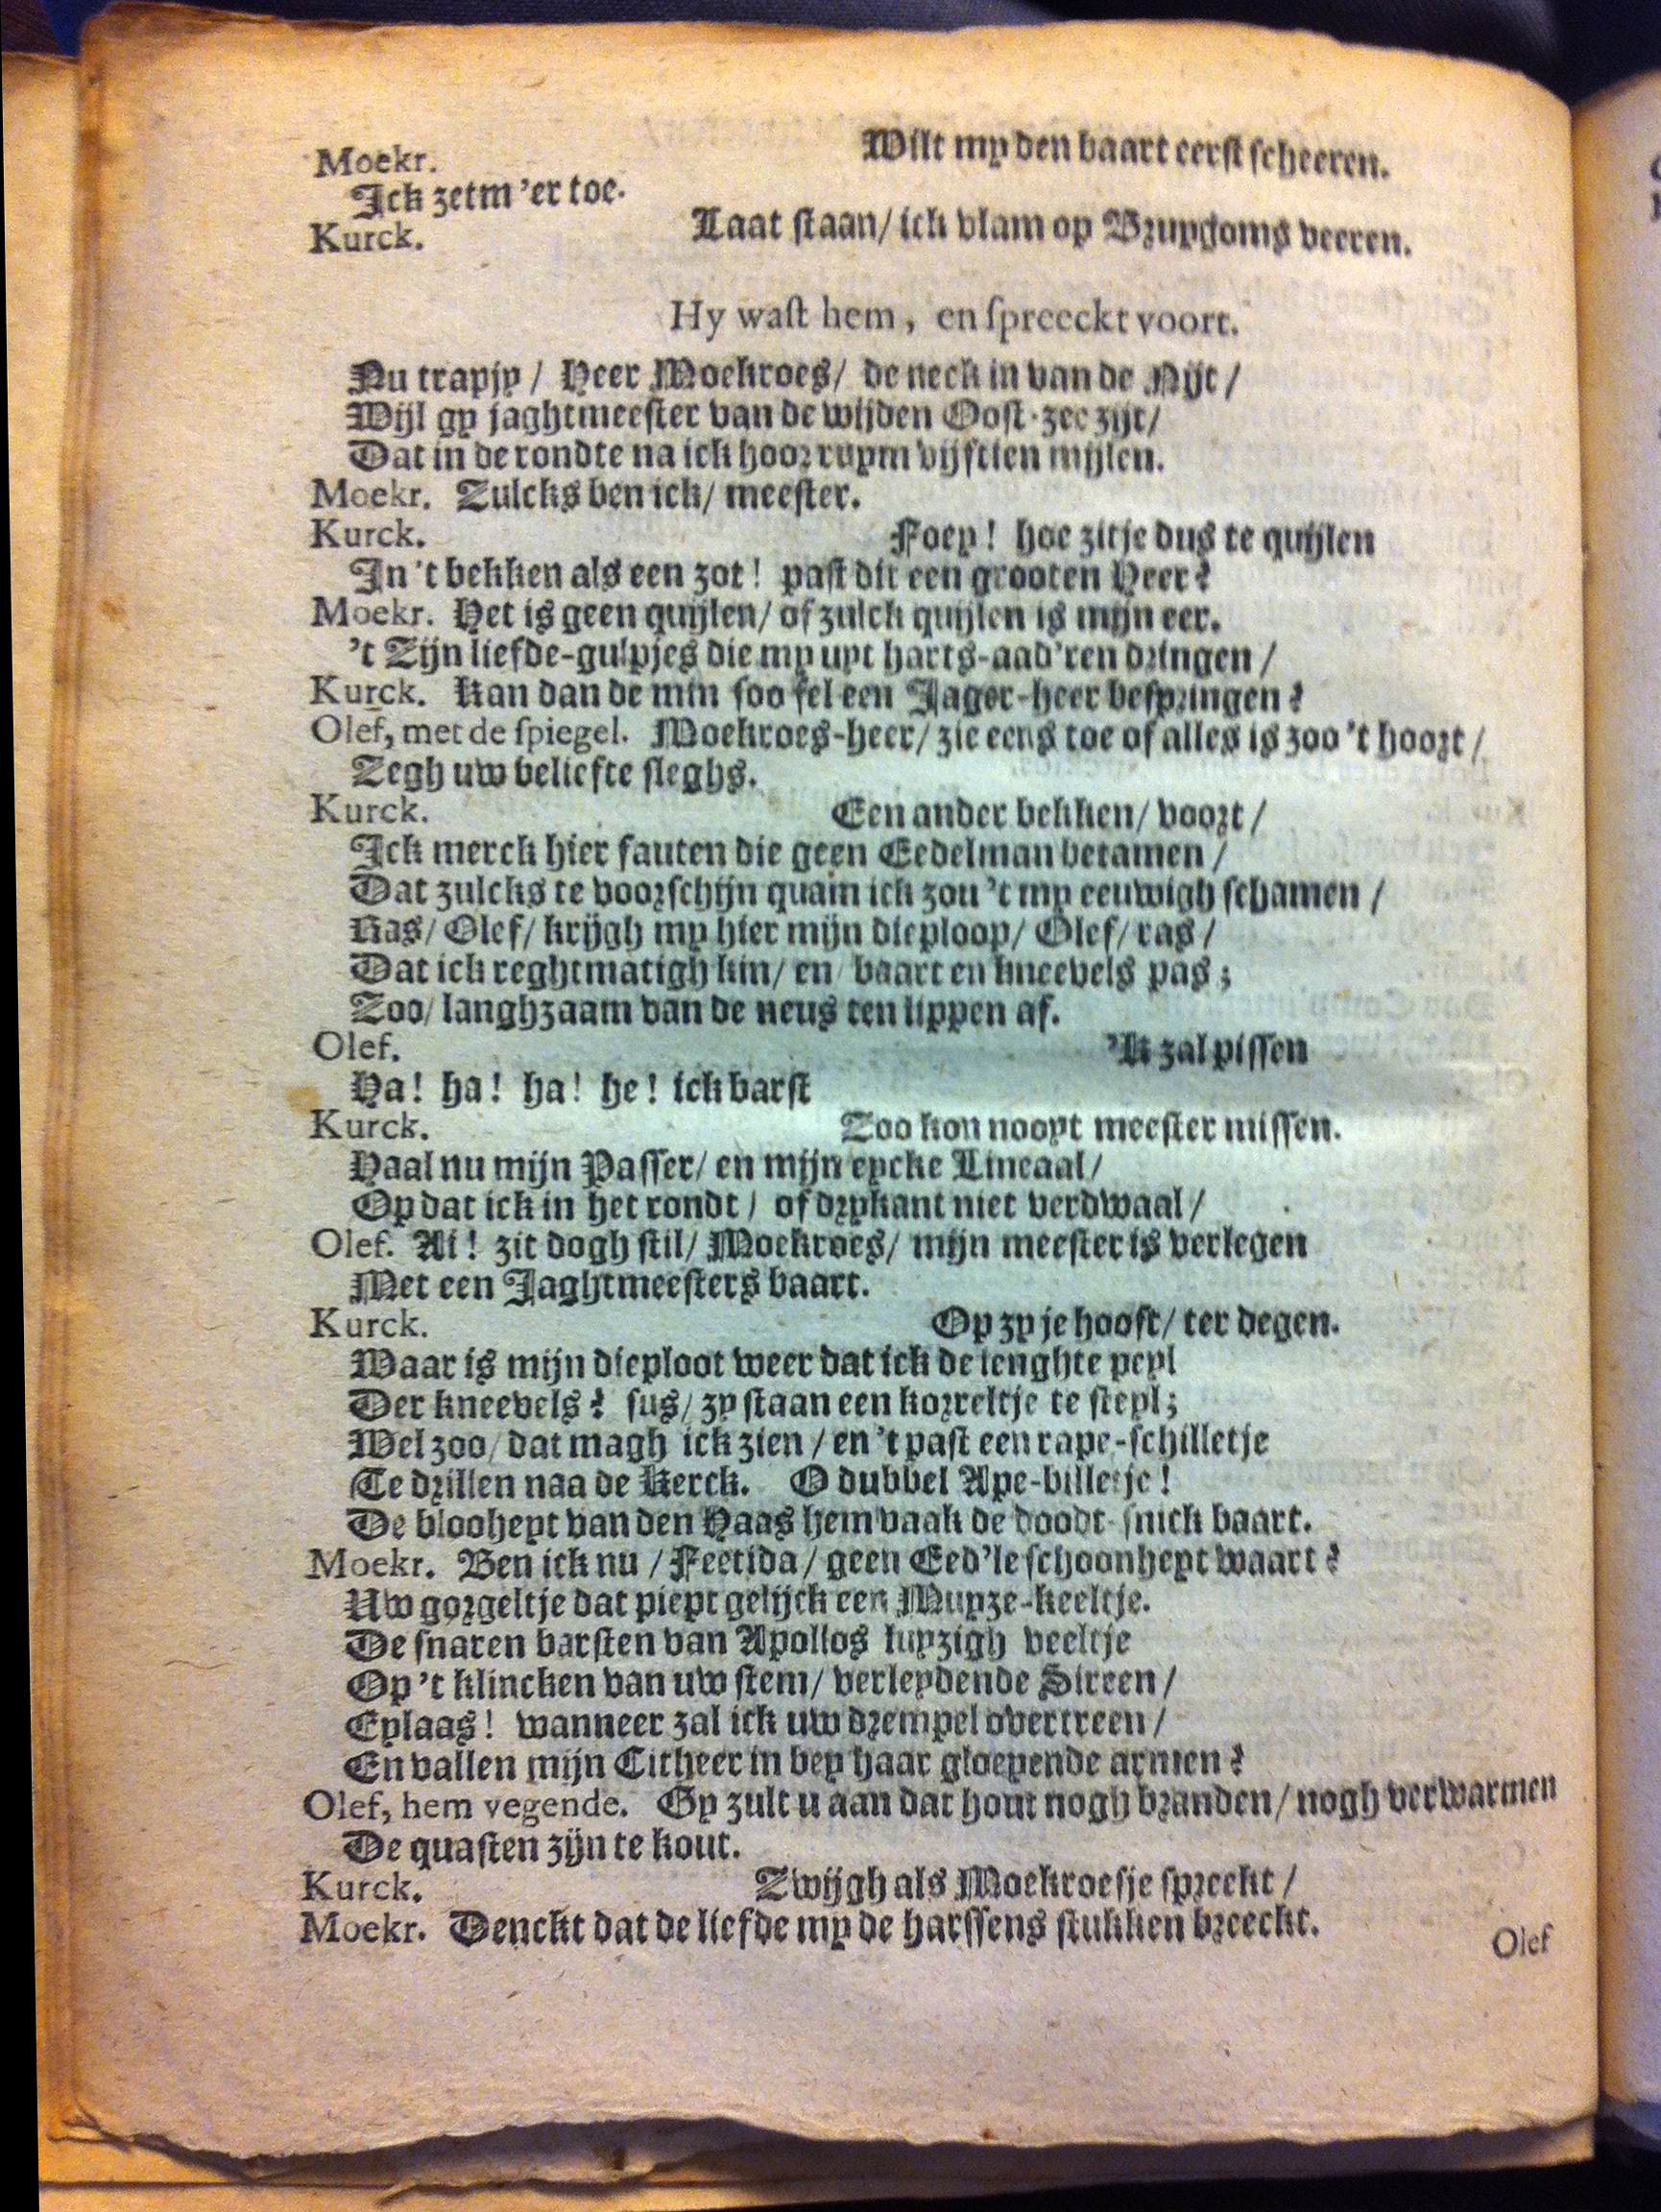 Wilt my den baart eerst scheeren.
Moekr.
Ick zetm 'er toe.
Kurck. Laat staan/ ick vlam op Bruydoms veeren.
Hy wast hem, en spreeckt voort.
Nu trapjy / Heer Moekroes/ de neck in van de Nijt /
Wijl gy jaghtmeester van de wijden Oost-zee zijt/
Dat in de rondte na ick hoor ruym vijftien mijlen.
Moekr. Zulcks ben ick/ meester.
Kurck. Foey! hoe zitje dus te quijlen
In 't bekken als een zot! past dit een grooten Heer?
Moekr. Het is geen quijlen/ of zulck quijlen is mijn eer.
't Zijn liefde-gulpjes die my uyt harts-aad'ren dringen /
Kurck. Kan dan de min soo fel een Jager-heer bespringen?
Olef, met de spiegel. Moekroes-heer/ zie eens toe of alles is zoo 't hoort /
Zegh uw beliefte sleghs.
Kurck. Een ander bekken/ voort /
Ick merck hier fauten die geen Eedelman betamen /
Dat zulcks te voorschijn quam ick zou 't my eeuwigh schamen /
Ras/ Olef/ krijgh my hier mijn dieploop/ Olef/ ras /
Dat ick reghtmatigh kin/ en baart en kneevels pas;
Zoo/ langhzaam van de neus ten lippen af.
Olef. 'k zal pissen
Ha! ha! ha! he! ick barst
Kurck. Zoo kon nooyt meester missen.
Haal nu mijn Passer/ en mijn eycke Lineaal/
Op dat ick in het rondt / of drykant niet verdwaal /
Olef. Ai! zit dogh stil/ Moekroes/ mijn meester is verlegen
Met een Jaghtmeesters baart.
Kurck. Op zy je hooft/ ter degen.
Waar is mijn dieploot weer dat ick de lenghte peyl
Der kneevels? sus/ zy staan een korreltje te steyl;
Wel zoo/ dat magh ick zien / en 't past een rape-schilletje
Te drillen naa de Kerck. O dubbel Ape-billetje!
De blooheyt van den Haas hem vaak de doodt-snick baart.
Moekr. Ben ick nu / Feetida / geen Eed'le schoonheyt waart?
Uw gorgeltje dat piept gelijck een Muyze-keeltje.
De snaren barsten van Apollos luyzigh veeltje
Op 't klincken van uw stem/ verleydende Sireen /
Eylaas! wanneer zal ick uw drempel overtreen /
En vallen mijn Citheer in bey haar gloeyende armen?
Olef, hem vegende. Gy zult u aan dat hout nogh branden/ nogh verwarmen
De quasten zijn te kout.
Kurck. Zwijgh als Moekroesje spreekt /
Moekr. Denckt dat de liefde my de harssens stukken breeckt.
Olef